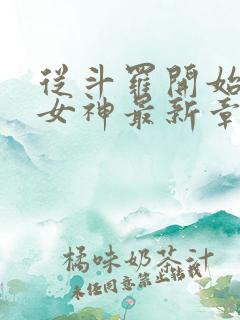 從斗羅開始
女神最新章
橘味奶茶汁
未经同意禁止转载